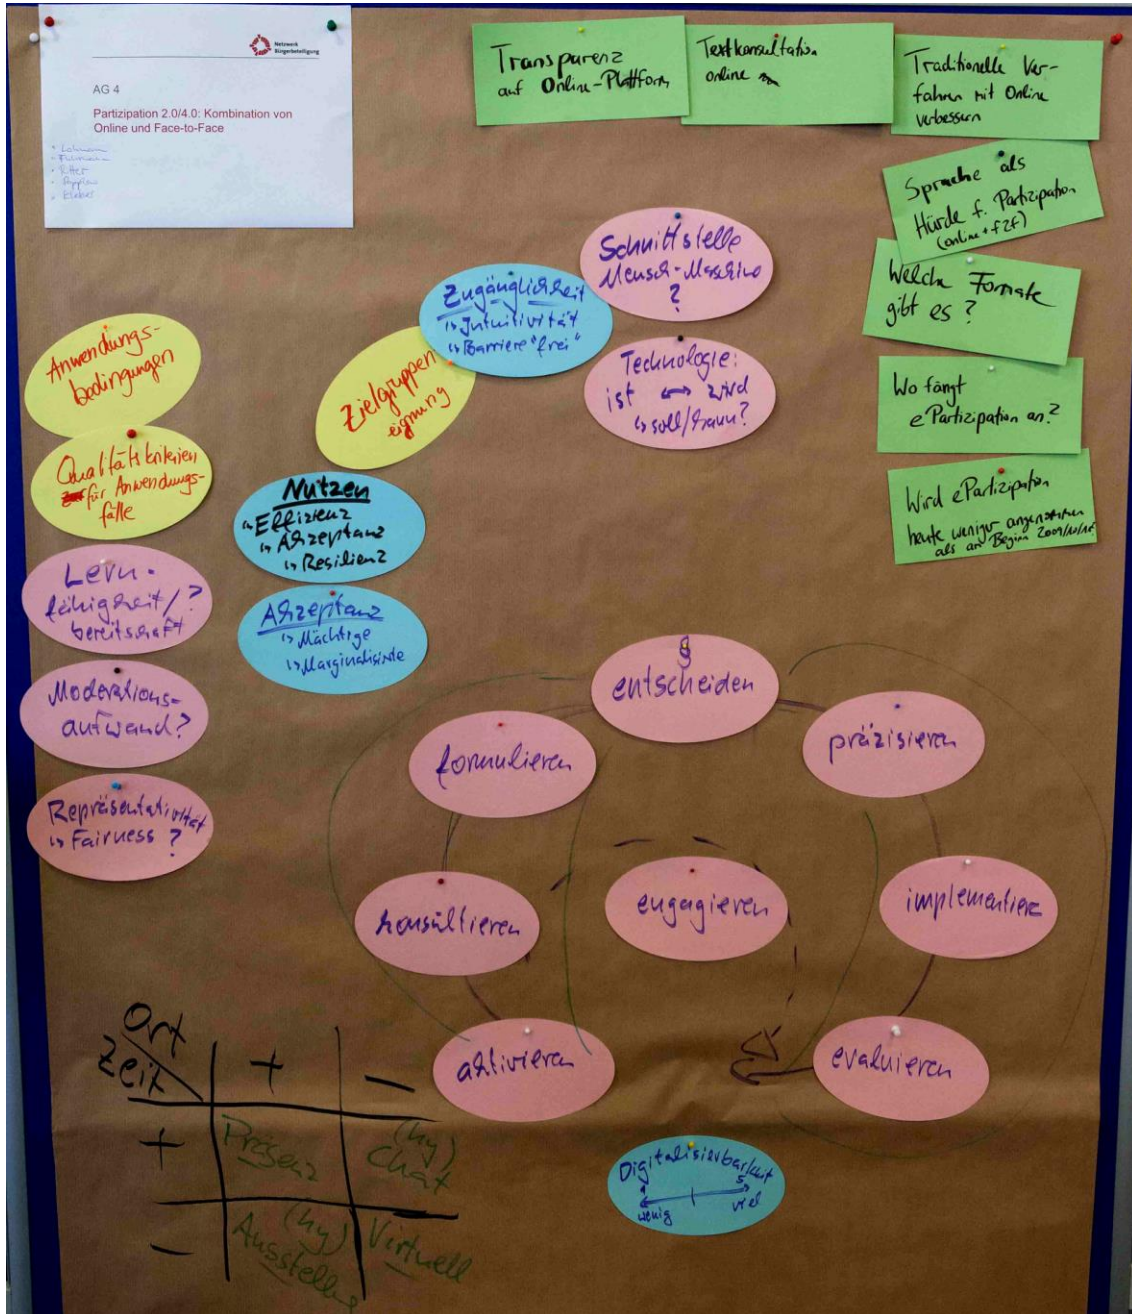 Netzwerk
Bürgerbeteiligung
AG 4
Partizipation 2.0/4.0: Kombination von
Online und Face-to-Face
Transparenz
auf Online-Plattform
Textkonsultation
online
Traditionelle Ver-
fahren mit Online
verbessern
Sprache als
Hürde f. Partizipation
(online + f2f)
Welche Formate
gibt es?
Wo fängt
ePartizipation an?
Wird ePartizipation
heute weniger angenommen
als am Beginn
Schnittstelle
Mensch-Maschine
?
Technologie:
ist ↔ wird
↳ soll/kann?
Zugänglichkeit
↳ Intuitivität
↳ Barriere "frei"
Zielgruppen
eignung
Anwendungs-
bedingungen
Qualitätskriterien
für Anwendungs-
fälle
Nutzen
↳ Effizienz
↳ Akzeptanz
↳ Resilienz
Akzeptanz
↳ Mächtige
↳ Marginalisierte
Lern-
fähigkeit/?
bereitschaft
Moderations-
aufwand?
Repräsentativität
↳ Fairness?
§
entscheiden
formulieren
präzisieren
konsultieren
engagieren
implementiere
aktivieren
evaluieren
Digitalisierbarkeit
1 5
wenig viel
Ort
Zeit
+ −
+ Präsenz (hy) Chat
− (hy) Ausstellg Virtuell